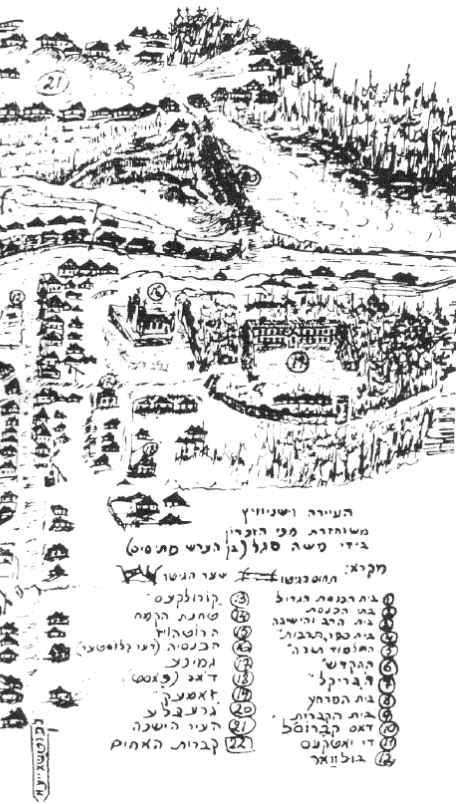 21
16
19
העיירה וישניוויץ
משוחזרת מפי הזכרון
בידי משה סגל (בן הערש
מקרא: תחום הגיטו שער הגיטו
1 בית הכנסת הגדול
2 בתי הכנסת
3 בית הרב והישיבה
4 בית ספר "תרבות"
5 "תלמוד תורה"
6 "ההקדש"
7 "הבריקל"
8 בית המרחץ
9 בית הקברות
10 דאס
11 די יאטקעס
12 בולוואר
13 קורולקעס
14 טחנת הקמח
15 הרוטהויז
16 הכנסיה (דער קלוסטער)
17 גמינע
18 דאר (פאסט)
19 זאמעק
20 גרעבליע
21 העיר הישנה
22 קברות האחים